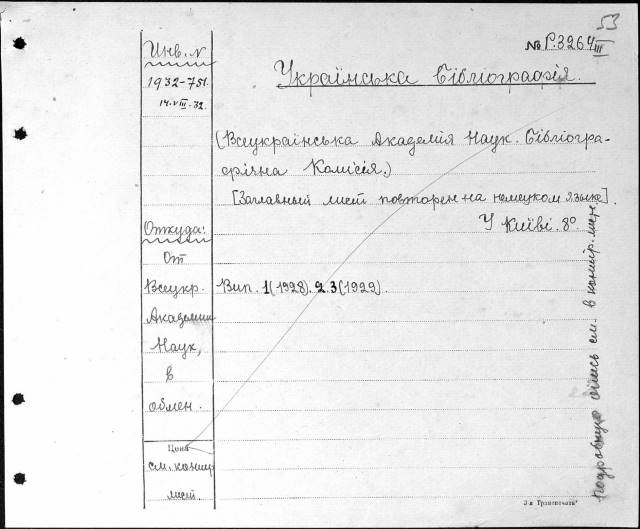 53
№ Г.3264 III
Українська Бібліографія.
(Всеукраїнська Академія Наук. Бібліогра-
фічна Комісія.)
[Заглавный лист повторен на немецком языке].
У Київі. 8º
Вип. 1(1928). 2. 3(1929).
Инв. №
1932-751.
14.VIII.32.
Откуда:
От
Всеукр.
Академии
Наук,
в
обмен.
Цена
см.конир
лист.
подробную опись см. в конир. лист.
3-я Транспечати"